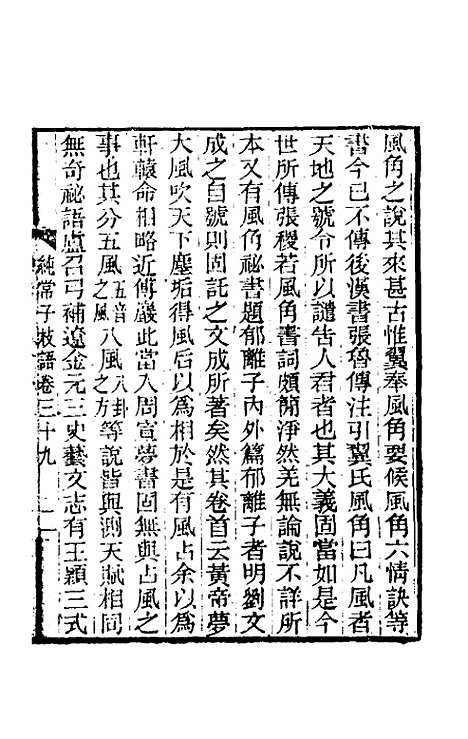 風角之說其來甚古惟翼奉風角要候風角六情訣等
書今已不傳後漢書張魯傳注引翼氏風角曰凡風者
天地之號令所以譴告人君者也其大義固當如是今
世所傳張稷若風角書詞頗簡淨然羌無論說不詳所
本又有風角祕書題郁離子內外篇郁離子者明劉文
成之自號則固託之文成所著矣然其卷首云黃帝夢
大風吹天下塵垢得風后以爲相於是有風占余以爲
軒轅命相略近傅巖此當入周宣夢書固無與占風之
事也其分五風五音之風八風八卦之方等說皆與測天賦相同
無奇祕語盧召弓補遼金元三史藝文志有王顥三式
純常子枝語卷三十九 二